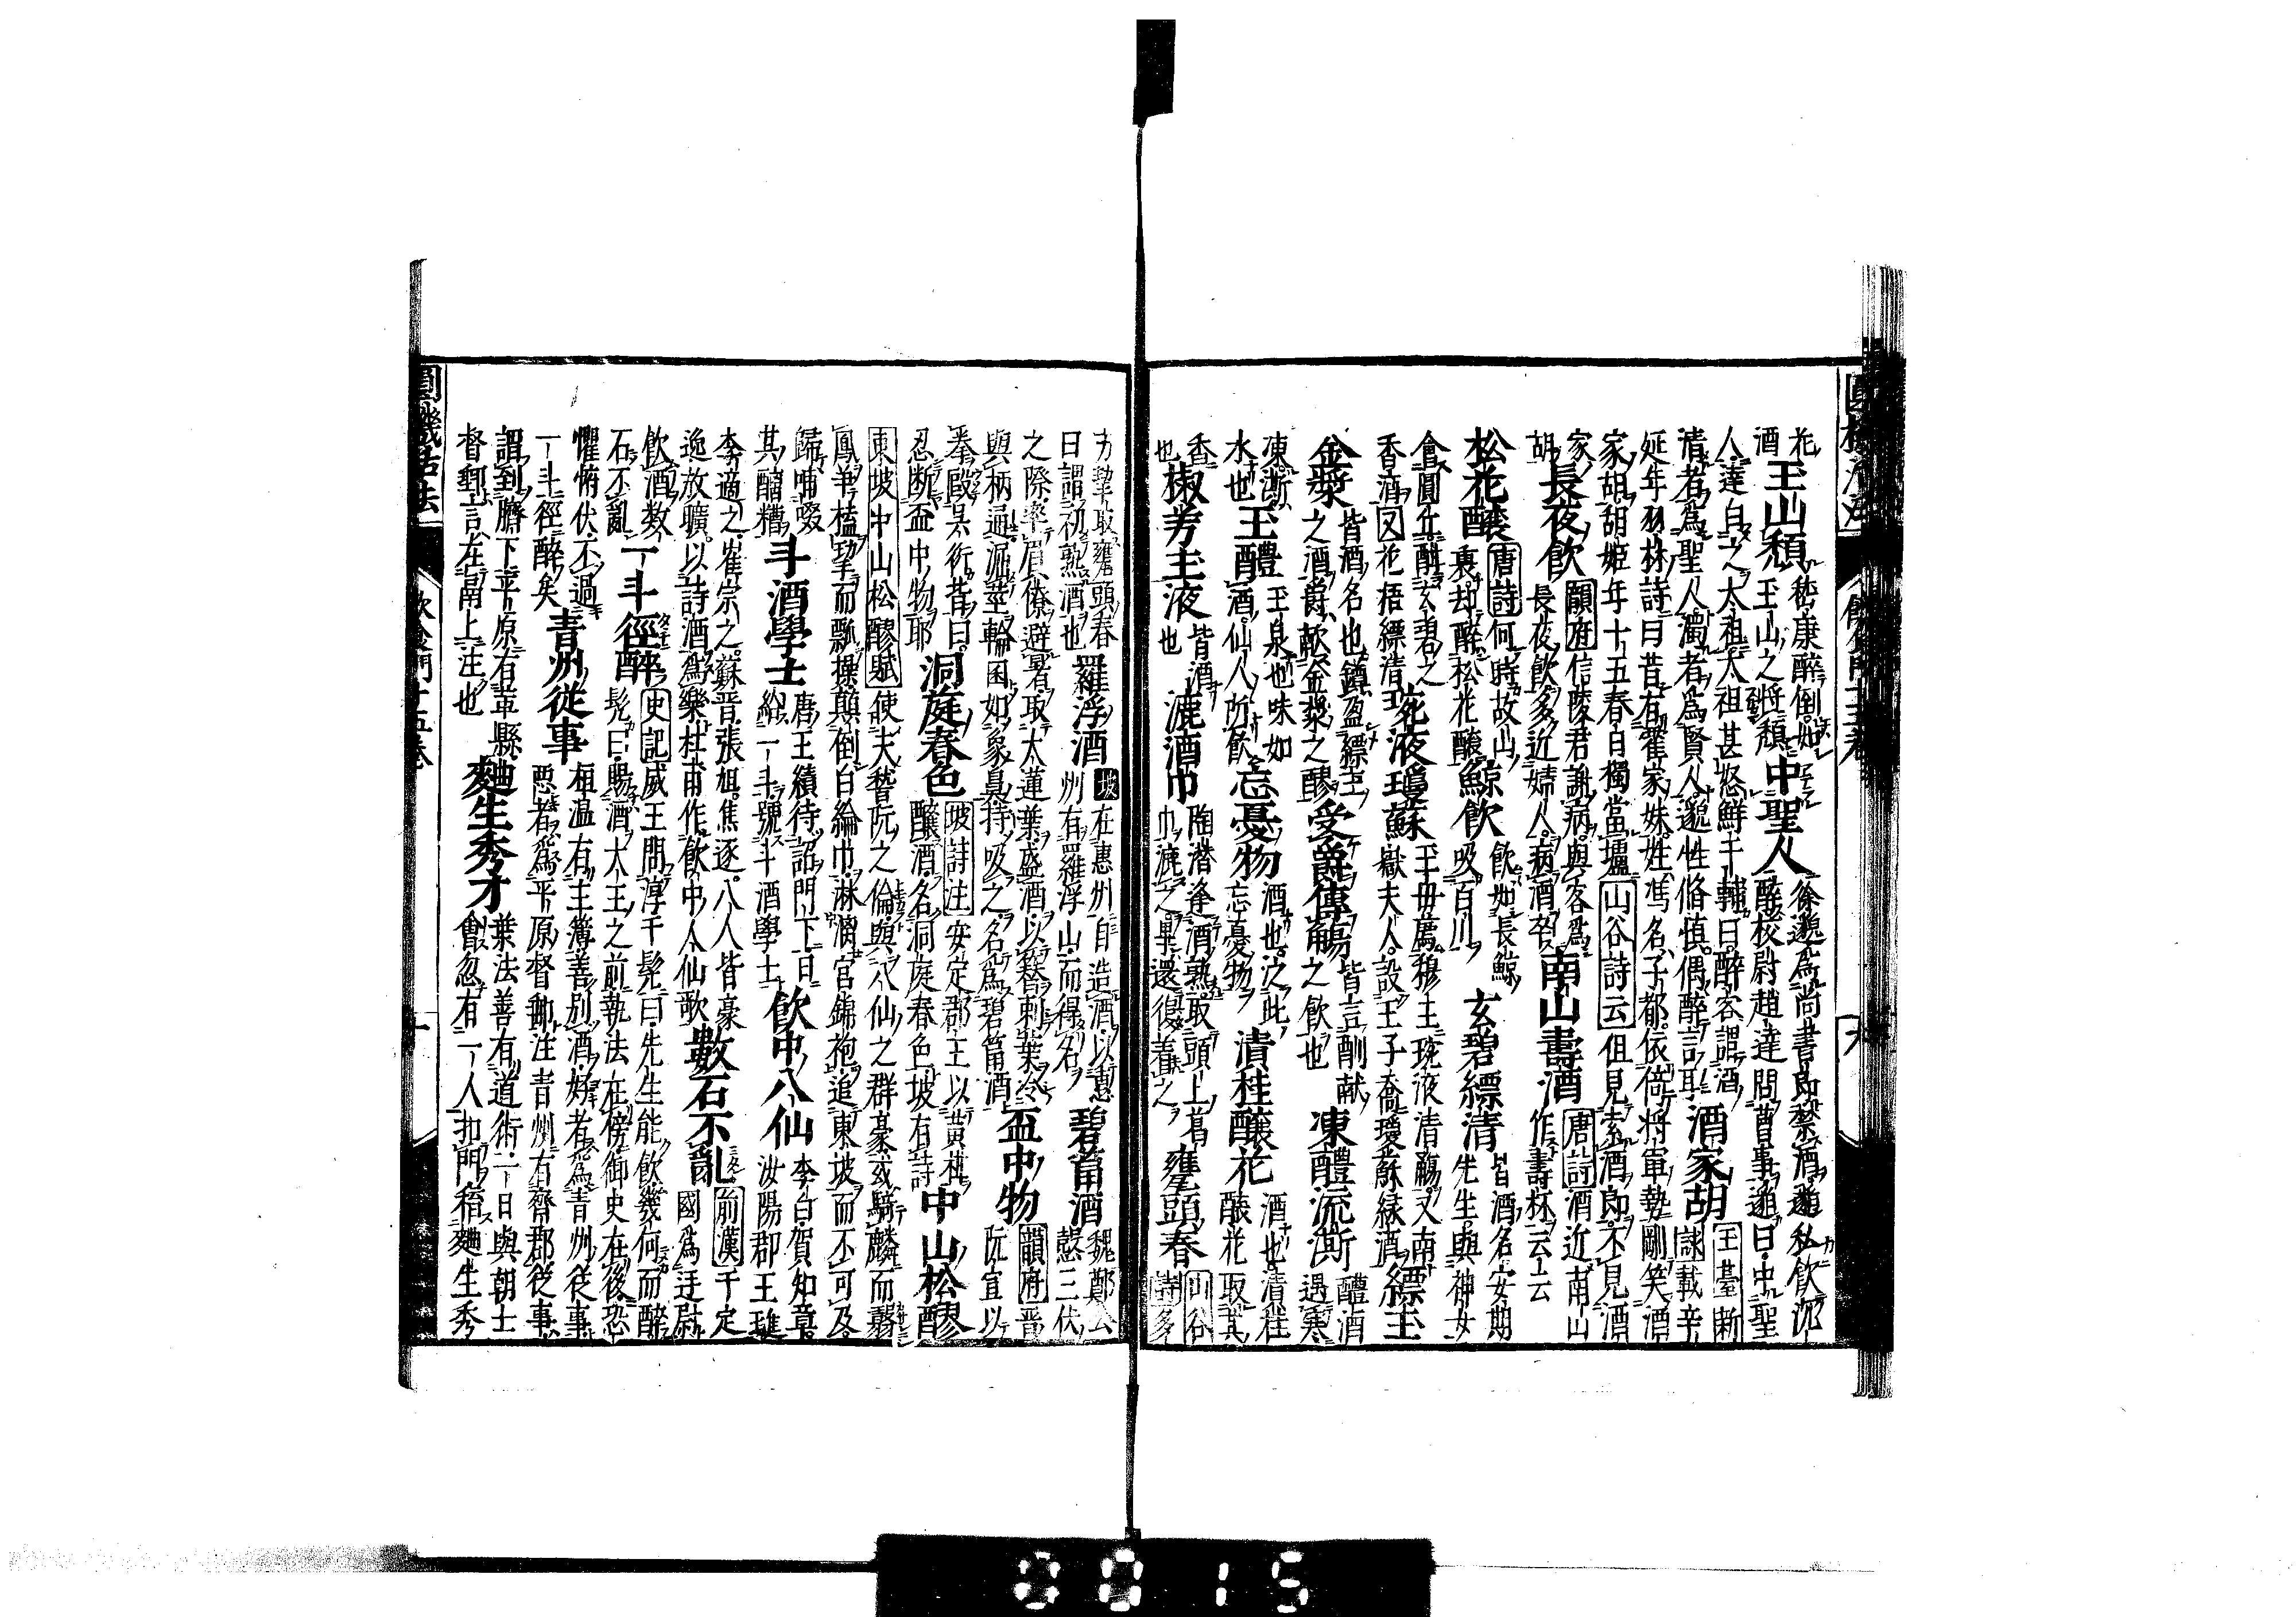 花
酒
玉山頹
嵆康醉倒如
玉山之將頹
中聖人
徐邈為尚書郎禁酒邈私飲沉
醉校尉趙達問曹事邈曰中聖
人達白之太祖太祖甚怒鮮于輔曰醉客謂酒
清者為聖人濁者為賢人邈性脩慎偶醉言耳
酒家胡
玉臺新
詠載辛
延年羽林詩曰昔有霍家姝姓馮名子都依倚將軍勢剛笑酒
家胡胡姬年十五春日獨當壚山谷詩云但見索酒郎不見酒
家
胡
長夜飲
韻府信陵君謝病與客為
長夜飲多近婦人病酒卒
南山壽酒
唐詩酒近南山
作壽杯云云
松花釀
唐詩何時故山
裏却醉松花釀
鯨飲
飲如長鯨
吸百川
玄碧縹清
皆酒名安期
先生與神女
會圓丘酣玄碧之
香酒又花梧縹清
琬液瓊蘇
王母薦穆王琬液清觴又南
嶽夫人設王子喬瓊蘇緑酒
縹玉
金漿
皆酒名也鐏盈縹玉
之酒爵献金漿之醪
受爵傳觴
皆言酬献
之飲也
凍醴流澌
醴酒
遇寒
凍澌
水也
玉醴
玉泉也味如
酒仙人所飲
忘憂物
酒也泛此
忘憂物
漬桂釀花
酒也漬桂
釀花取其
香
也
椒芳主液
皆酒
也
漉酒巾
陶潜逢酒熟取頭上葛
巾漉之畢還復着之
甕頭春
山谷
詩多
力挈取甕頭春
曰謂初熟酒也
羅浮酒
坡在惠州自造酒以惠
州有羅浮山而得名
碧筩酒
魏鄭公
愨三伏
之際率眉僚避暑取大蓮葉盛酒以簪刺葉令
與柄通漏莖輪囷如象鼻持吸之名為碧筩酒
盃中物
韻府晋
阮宣以
拳毆吴衍昔曰
忍断盃中物耶
洞庭春色
坡詩注安定郡王以黄柑
釀酒名洞庭春色坡有詩
中山松醪
東坡中山松醪賦使夫嵇阮之倫與八仙之群豪或騎麟而翳
鳳争榼挈而瓢操顛倒白綸巾淋漓宮錦袍追東坡而不可及
歸哺啜
其醨糟
斗酒學士
唐王績待詔門下日
給一斗號斗酒學士
飲中八仙
李白賀知章
汝陽郡王璡
李適之崔宗之蘇晋張旭焦遂八人皆豪
逸放曠以詩酒為樂杜甫作飲中八仙歌
數石不亂
前漢于定
國為廷尉
飲酒数
石不亂
一斗徑醉
史記威王問淳于髡曰先生能飲幾何而醉
髡曰賜酒大王之前執法在傍御史在後恐
懼俯伏不過
一斗徑醉矣
青州從事
桓温有主簿善别酒好者為青州從事
悪者為平原督郵注青州有齊郡從事
謂到臍下平原有革縣
督郵言在鬲上注也
麯生秀才
葉法善有道術一日與朝士
會忽有一人扣門稱麯生秀